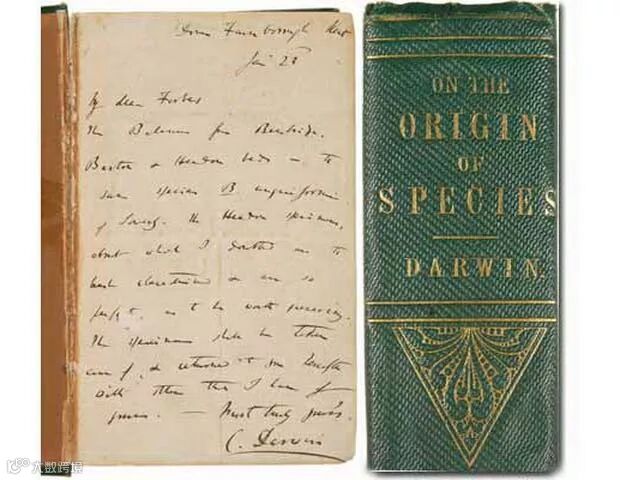 Down Farnborough Kent
Jan 28
My dear Forbes
The Balanus from Bembridge,
Barton & Headon beds is the
same species B. unguiformis
of Sowerby. The Headon specimens,
about which I doubted are the
best characterised & are so
perfect, as to be worth preserving.
The specimens shall be taken
care of, & returned to you together
with others that I have of
yours. — Most truly yours
C. Darwin
ON THE
ORIGIN
OF
SPECIES
DARWIN.
大数跨境